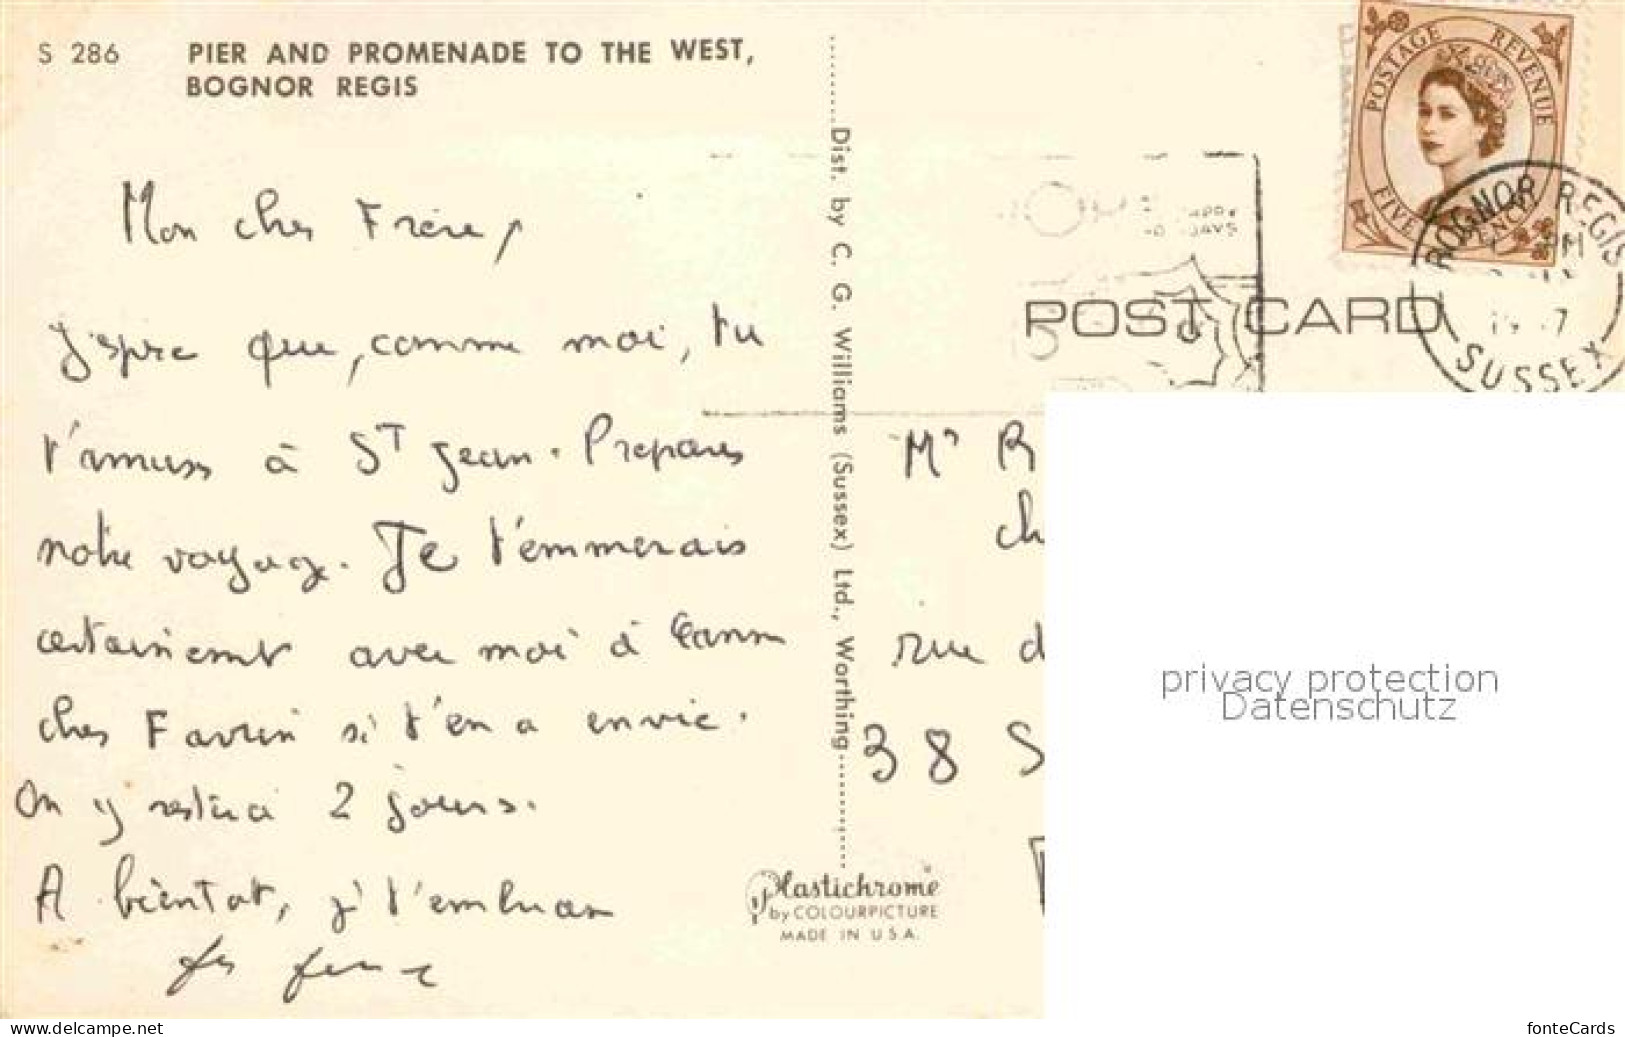 S 286 PIER AND PROMENADE TO THE WEST,
BOGNOR REGIS
Mon cher Frère,
J'espire que, comme moi, tu
t'amuses à ST Jean. Prepares
notre voyage. Je t'emmerais
certainement avec moi à Cannes
chez Favrin si t'en a envie.
On y restera 2 jours.
A bientot, je t'embrasse
Dist. by C. G. Williams (Sussex) Ltd., Worthing
Plastichrome
by COLOURPICTURE
MADE IN U.S.A.
POSTAGE REVENUE
FIVE PENCE
BOGNOR REGIS
PM
SUSSEX
POST CARD
Mr R
ch
rue d
38 S
privacy protection
Datenschutz
www.delcampe.net
fonteCards